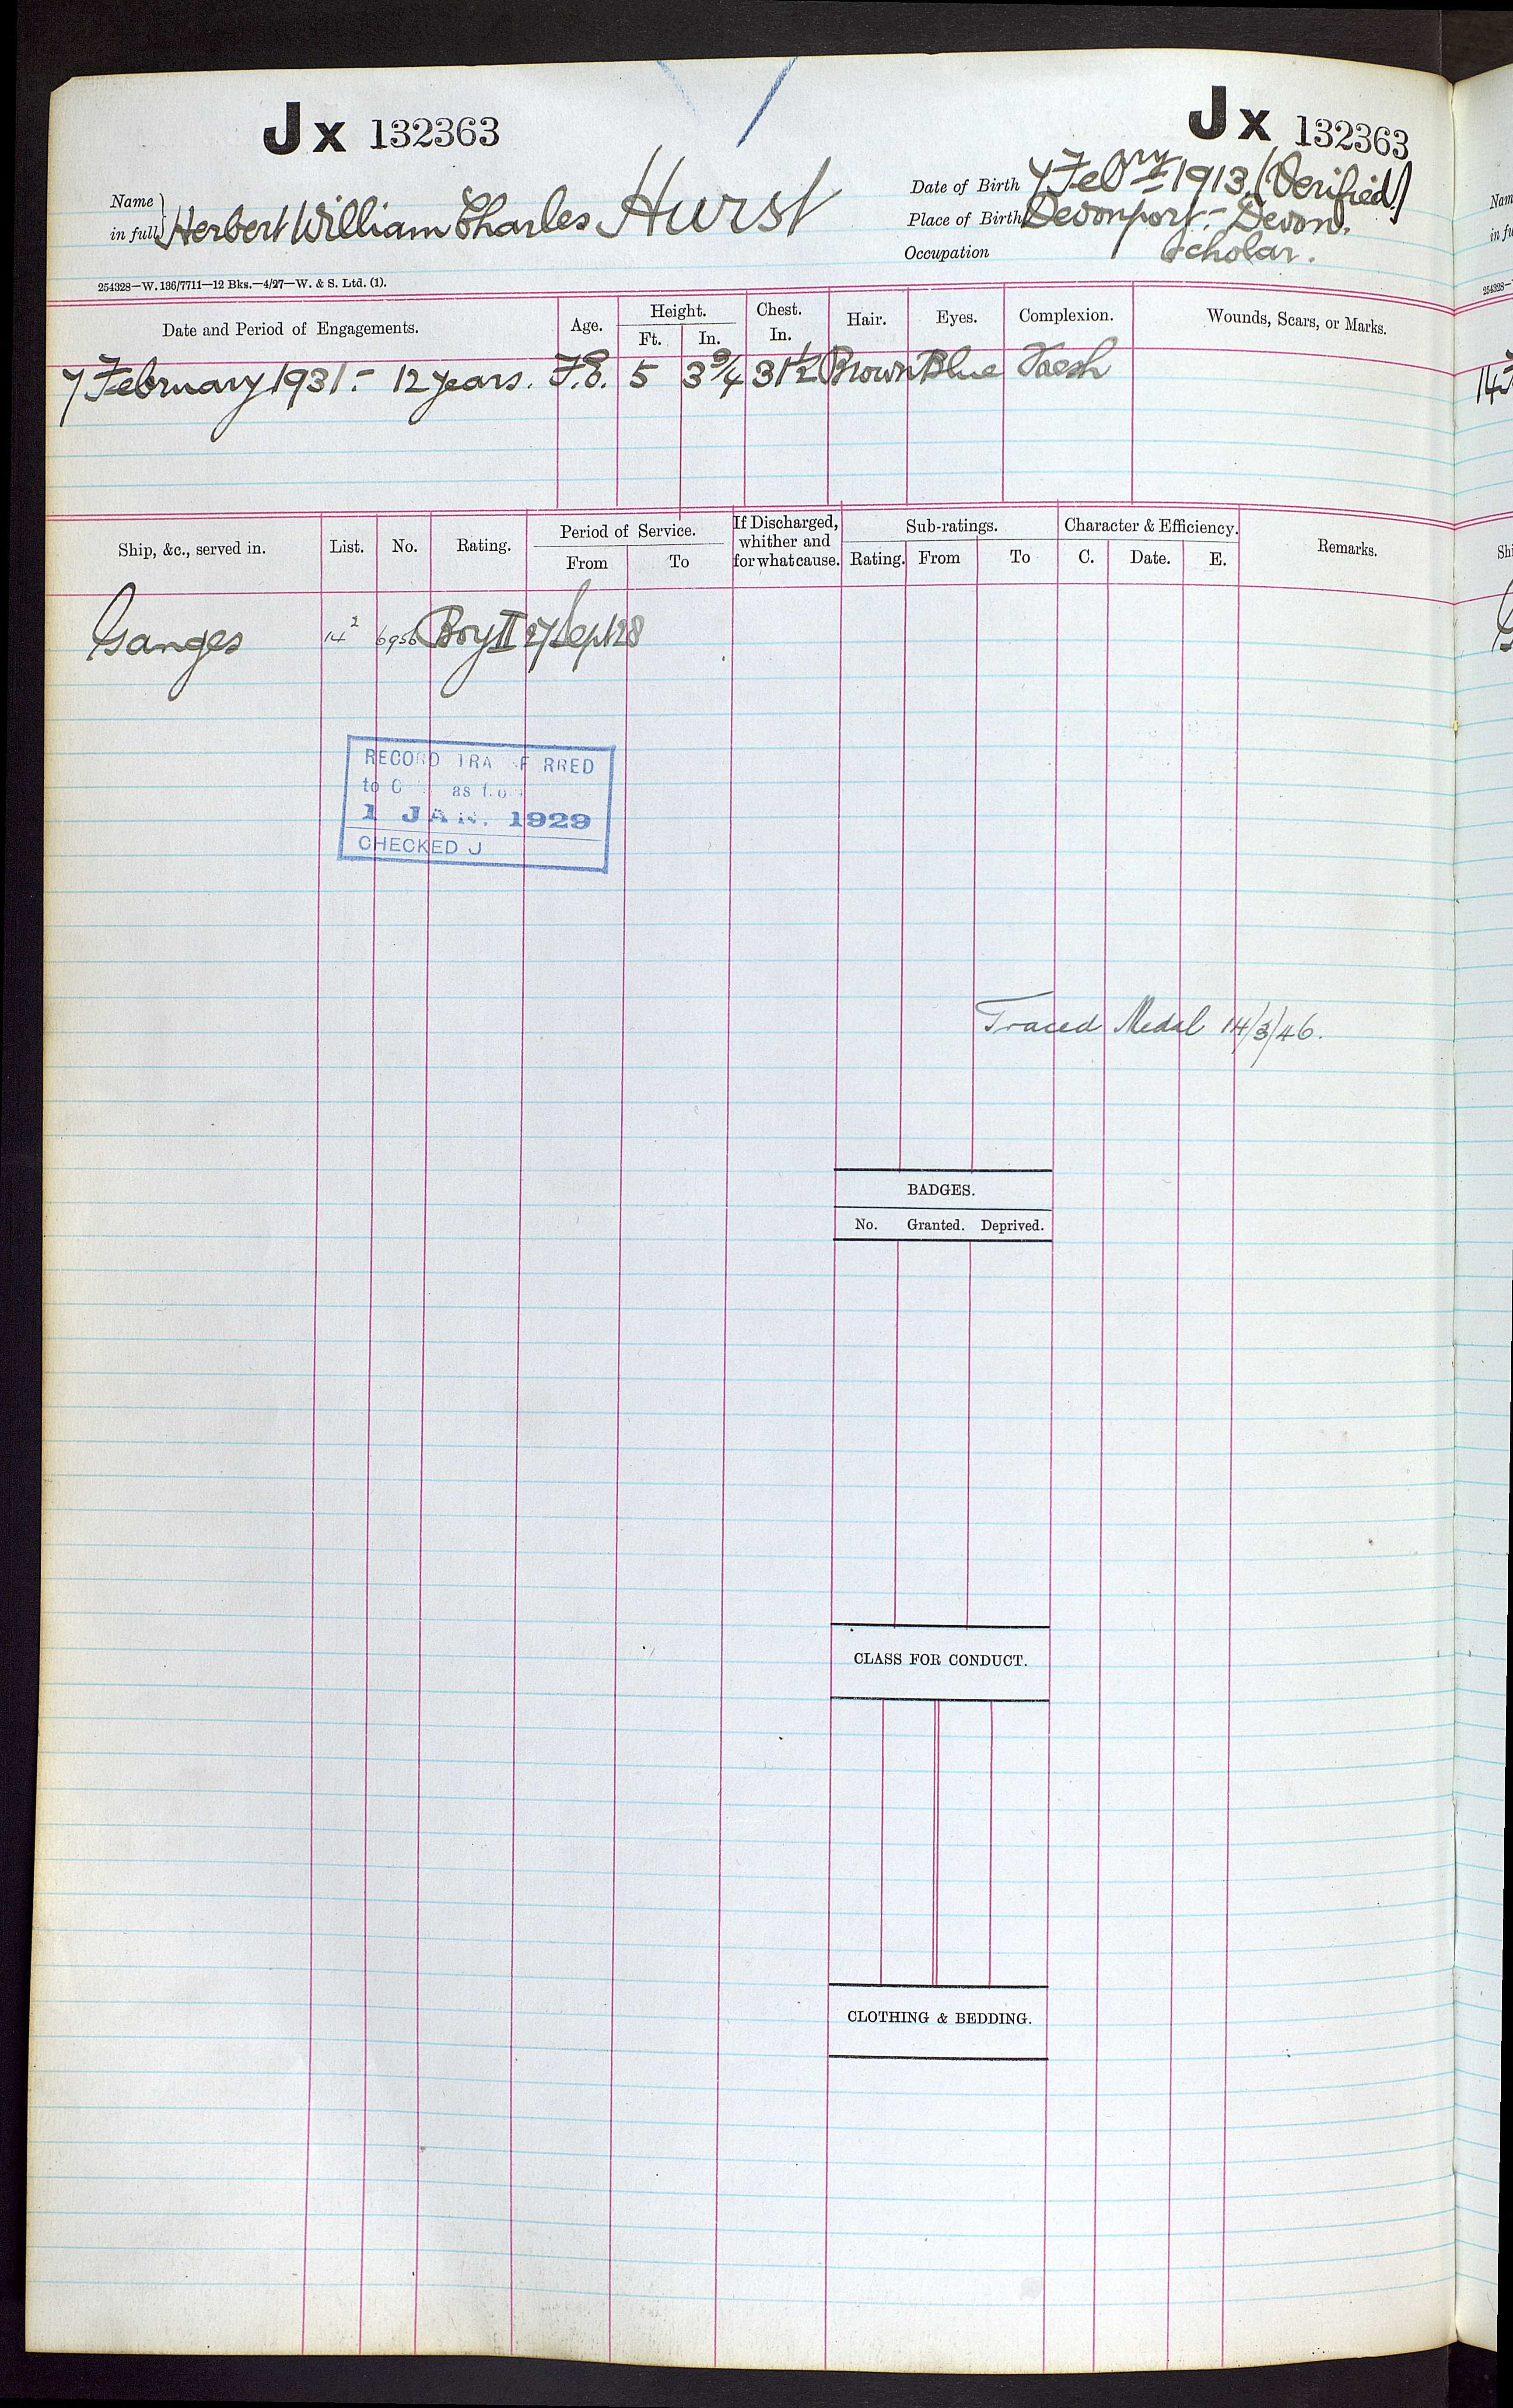 Jx 132363
Jx 132363
Name in full Herbert William Charles Hurst
Date of Birth 7 Febry 1913. (Verified)
Place of Birth Devonport - Devon.
Occupation Scholar.
254328—W. 136/7711—12 Bks.—4/27—W. & S. Ltd. (1).
Date and Period of Engagements. Age. Height. Ft. In. Chest. In. Hair. Eyes. Complexion. Wounds, Scars, or Marks.
7 February 1931 - 12 years. F.E. 5 3 3/4 31 1/2 Brown Blue Fresh
Ship, &c., served in. List. No. Rating. Period of Service. From To If Discharged, whither and for what cause. Sub-ratings. Rating. From To Character & Efficiency. C. Date. E. Remarks.
Ganges 14 2 6956 Boy II 27 Sept 28
RECORD TRA SF RRED
to as f
1 JAN. 1929
CHECKED J
Traced Medal 14/3/46.
BADGES.
No. Granted. Deprived.
CLASS FOR CONDUCT.
CLOTHING & BEDDING.